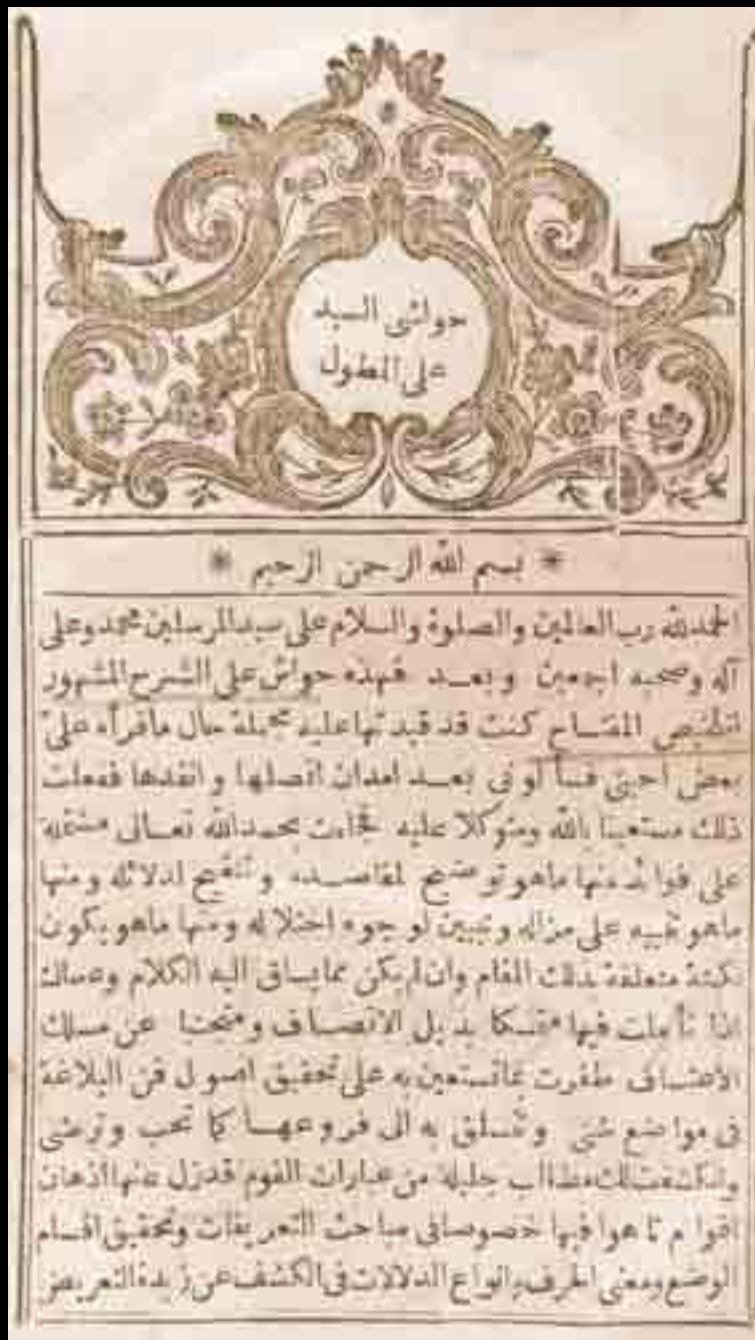 حواشى السيد
على المطول
* بسم الله الرحمن الرحيم *
الحمدلله رب العالمين والصلوة والسلام على سيدالمرسلين محمدوعلى
آله وصحبه اجمعين وبعــد فهذه حواش على الشرح المشهور
لتلخيص المفتــاح كنت قد قيدتها عليه مجملة حال ماقرأه علىّ
بعض احبتى فسألونى بعــد امدان افصلها وانقدها ففعلت
ذلك مستعينا بالله ومتوكلا عليه فجاءت بحمدالله تعــالى مشتملة
على فوائد منها ماهو توضيح لمقاصــده وتنقيح لدلائله ومنها
ماهو تنبيه على مزاله وتبيين لوجوه اختلاله ومنها ماهو يكون
نكتة متعلقة بذلك المقام وان لم يكن مما يساق اليه الكلام وعساك
اذا تأملت فيها متمسكا بذيل الانصــاف ومتجنبا عن مسلك
الاعتســاف ظفرت بماتستعين به على تحقيق اصول فن البلاغة
فى مواضع شتى وتتسلق به الى فروعهــا كما تحب وترضى
وانكشفت لك مطالب جليلة من عبارات القوم قدزل عنها اذهان
اقوام تاهوا فيها خصوصا فى مباحث التعريفات وتحقيق اقسام
الوضع ومعنى الحرف وانواع الدلالات فى الكشف عن زبدة التعريض